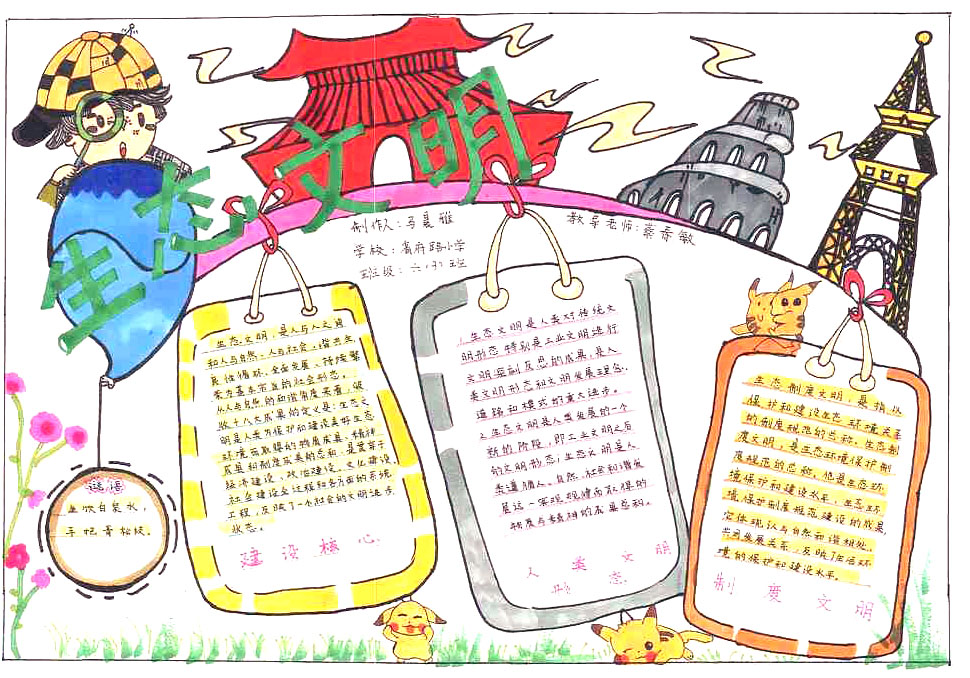 生态文明
制作人：马晨雅
学校：省府路小学
班级：六（3）班
教导老师：蔡彦敏
生态文明，是人与人之间
和人与自然，人与社会，谐共生
良性循环，全面发展、持续繁
荣为基本宗旨的社会形态。
从人与自然的和谐角度来看，吸
收十八大成果的定义是：生态文
明是人类为保护和建设美好生态
环境而取得的物质成果、精神
成果和制度成果的总和，是贯穿于
经济建设、政治建设、文化建设
社会建设全过程和各方面的系统
工程，反映了一个社会的文明进步
状态。
建设核心
1.生态文明是人类对传统文
明形态特别是工业文明进行
文明深刻反思的成果，是人
类文明形态和文明发展理念、
道路和模式的重大进步。
2.生态文明是人类发展的一个
新的阶段，即工业文明之后
的文明形态；生态文明是人
类遵循人、自然、社会和谐发
展这一客观规律而取得的
物质与精神的成果总和。
人类文明
形态
生态制度文明，是指以
保护和建设生态环境关系
的制度规范的总称，生态制
度文明，是生态环境保护制
度规范的总称，他是生态环
境保护和建设水平、生态环
境保护制度规范建设的成果，
它体现认与自然和谐相处、
共同发展关系，反映了生活环
境的保护和建设水平。
制度文明
谜语
坐吹白泉水，
手把青松枝。